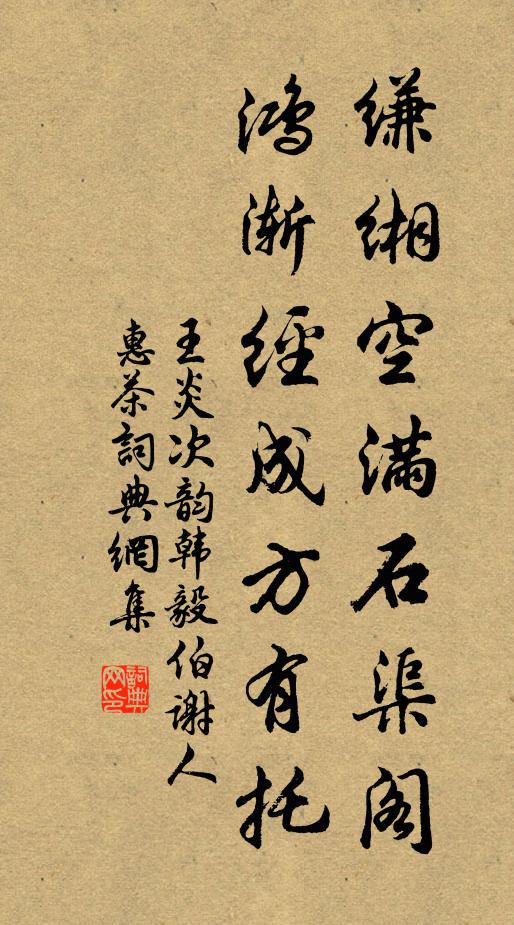 缣缃空满石渠阁
鸿渐經成方有托
王炎次韵韩毅伯谢人
惠茶詞典網集
詞典网印